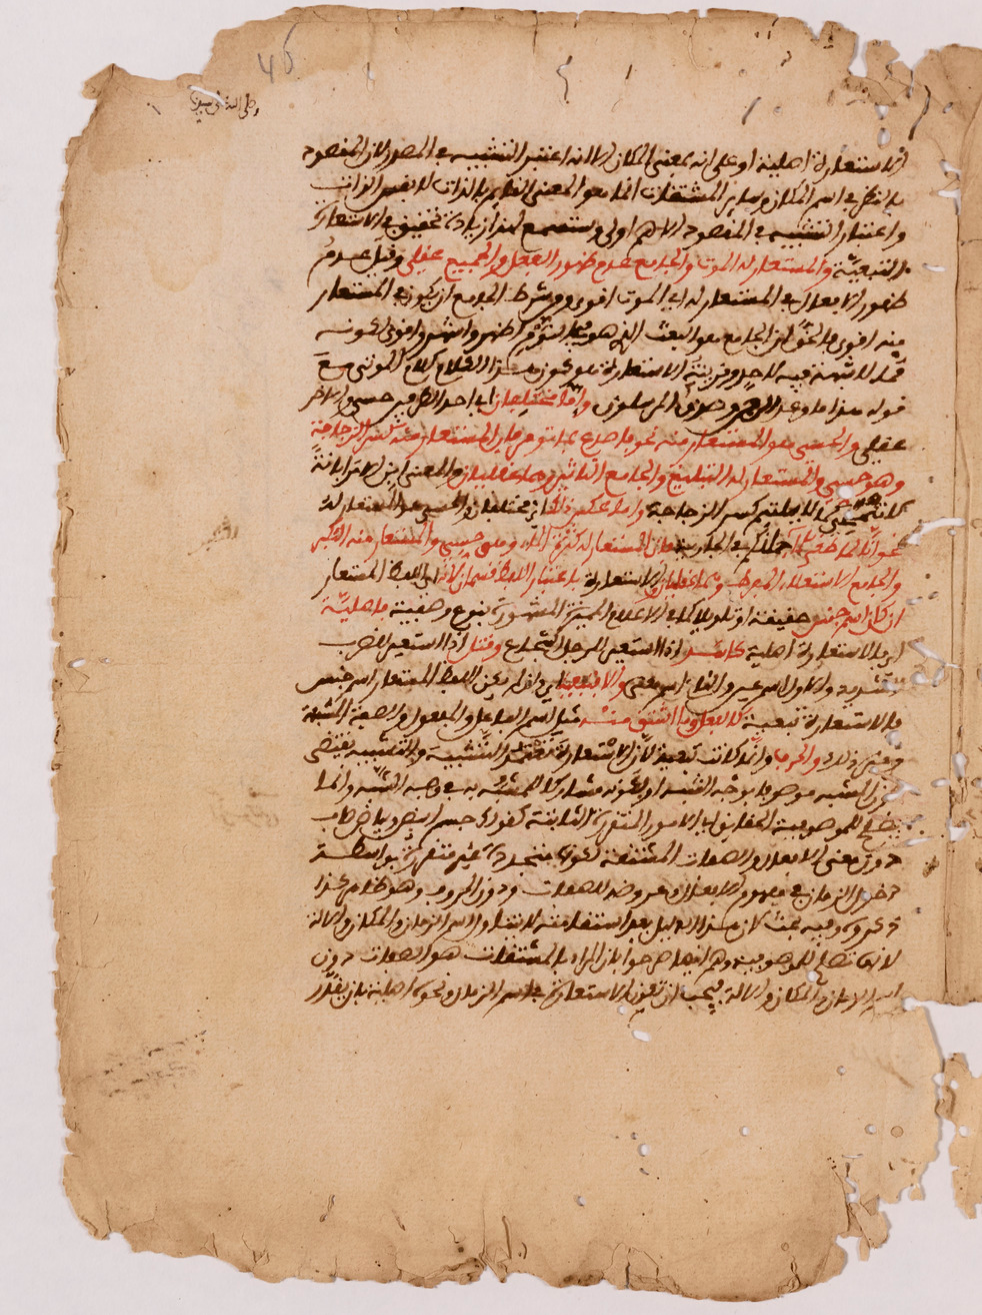 46
وصلى الله على سيدنا
الاستعارة اصلية او على انه بمعنى المكان الا انه اعتبر التشبيه في المصدر لان المقصود
بالنظر في اسم المكان وساير المشتقات انما هو المعنى القايم بالذات لا نفس الذات
واعتبار التشبيه في المقصود الاهم اولى وستسمع لهذا زيادة تحقيق في الاستعارة
التبعية والمستعار له الموت والجامع عدم ظهور الفعل والجميع عقلى وقيل عدم
ظهور الافعال في المستعار له اي الموت اقوى ومن شرط الجامع ان يكون في المستعار
منه اقوى فالحق ان الجامع هو البعث الذي هو في النوم اظهر واشهر واقوى لكونه
مما لا شبهة فيه لاحد وقرينة الاستعارة هو كون هذا الكلام كلام الموتى مع
قوله هذا ما وعد الرحمن وصدق المرسلون واما مختلفان اي احد الطرفين حسي والاخر
عقلي والحسي هو المستعار منه نحو فاصدع بما تومر فان المستعار منه كسر الزجاجة
وهو حسي والمستعار له التبليغ والجامع التاثير وهما عقليان والمعنى ابن الامر ابانة
لا تنمحي كما لا يلتئم كسر الزجاجة واما عكس ذلك اي مختلفان والحسي هو المستعار له
نحو انا لما طغى الماء حملناكم في الجارية فان المستعار له كثرة الماء وهو حسي والمستعار منه التكبر
والجامع الاستعلاء المفرط وهما عقليان والاستعارة باعتبار اللفظ قسمان لانه اي اللفظ المستعار
ان كان اسم جنس حقيقة او تاويلا كما في الاعلام المشهورة بنوع وصفية فاصلية
اي فالاستعارة اصلية كاسد اذا استعير للرجل الشجاع وقتل اذا استعير للضرب
الشديد والاول اسم عين والثاني اسم معنى والا فتبعية اي وان لم يكن اللفظ المستعار اسم جنس
فالاستعارة تبعية كالفعل وما اشتق منه مثل اسم الفاعل والمفعول والصفة المشبهة
وغير ذلك والحرف وانما كانت تبعية لان الاستعارة تعتمد التشبيه والتشبيه يقتضي
كون المشبه موصوفا بوجه الشبه او بكونه مشاركا للمشبه به في وجه الشبه وانما
يصلح للموصوفية الحقايق اي الامور المتقررة الثابتة كقولك جسم ابيض وبياض صاف
دون معنى الافعال والصفات المشتقة لكونها متجددة غير متقررة بواسطة
دخول الزمان في مفهوم الافعال وعروضه للصفات ودون الحروف وهو ظاهر كذا
ذكروه وفيه بحث لان هذا الدليل بعد استقامته لا يتناول اسم الزمان والمكان والالة
لانها تصلح للموصوفية وهم ايضا صرحوا بان المراد بالمشتقات هو الصفات دون
اسم الزمان والمكان والالة فيجب ان تكون الاستعارة في اسم الزمان ونحوه اصلية بان يقدر